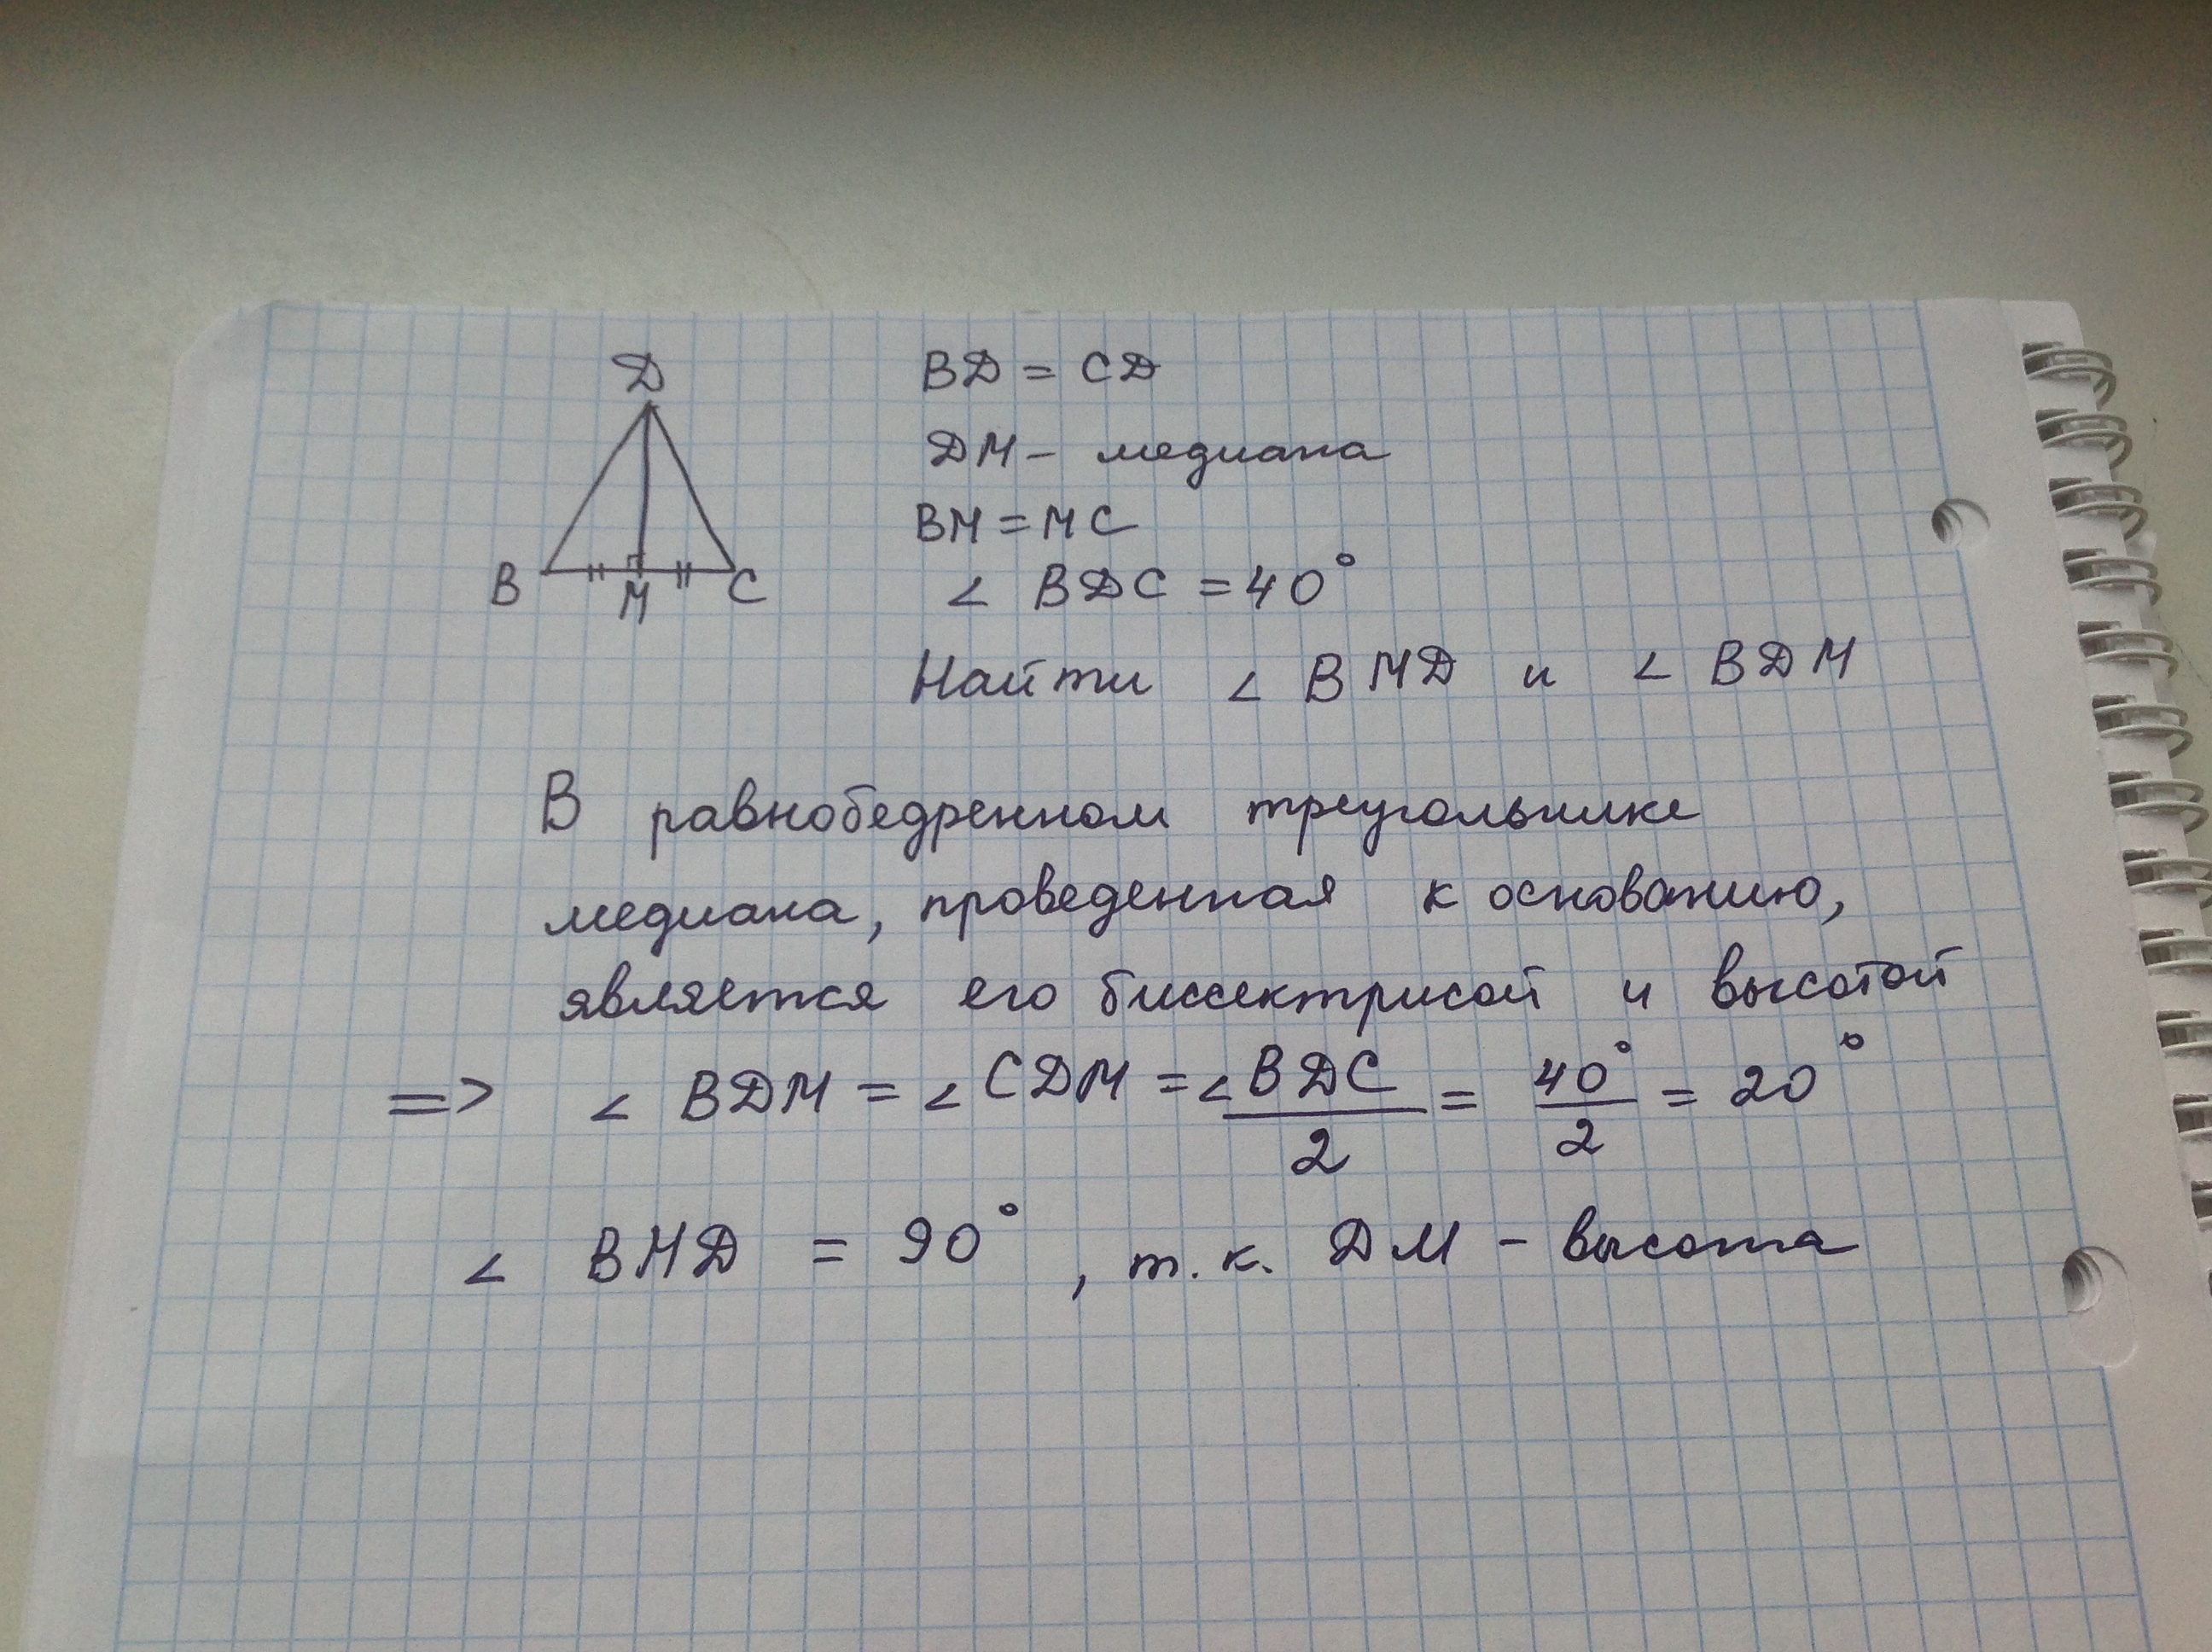 D
B M C
BD = CD
DM - медиана
BM = MC
∠ BDC = 40°
Найти ∠ BMD и ∠ BDM
В равнобедренном треугольнике
медиана, проведенная к основанию,
является его биссектрисой и высотой
=> ∠ BDM = ∠ CDM = ∠ BDC / 2 = 40° / 2 = 20°
∠ BMD = 90°, т.к. DM - высота